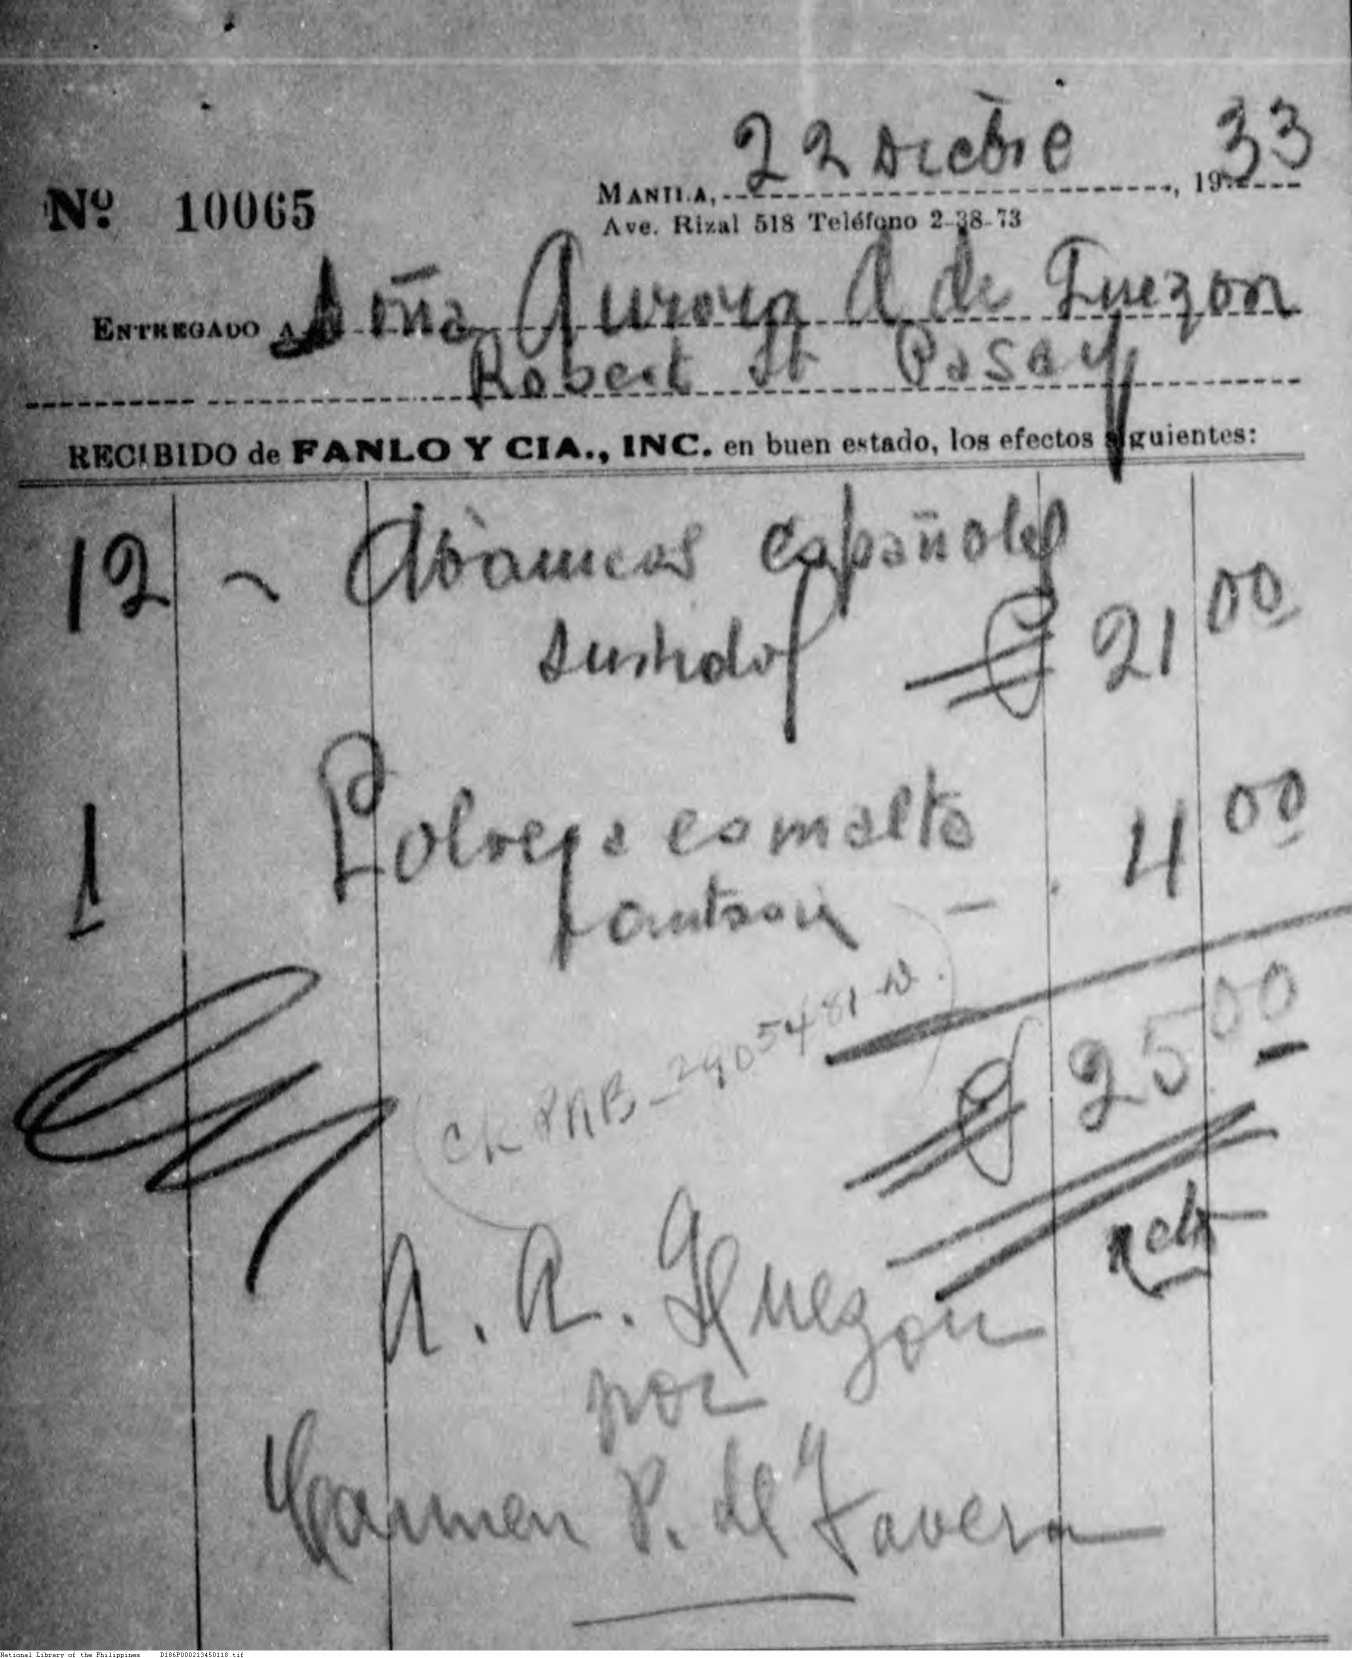 22 Dicbre 33
Nº 10065
MANILA, , 19
Ave. Rizal 518 Teléfono 2-38-73
ENTREGADO A Doña Aurora A de Quezon
Robert St Pasay
RECIBIDO de FANLO Y CIA., INC. en buen estado, los efectos siguientes:
12 - Abanicos españoles
surtidos ₱ 21 00
1 Polvera esmalte 4 00
fantasia -
(ck PNB - 2905481-N.)
₱ 25 00
neto
A. A. Quezon
por
Carmen P. de Tavera
National Library of the Philippines D186P000213450118.tif